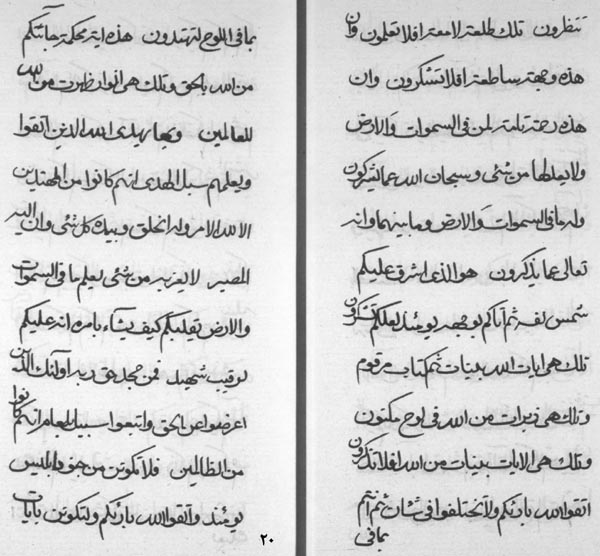 تنظرون تلك طلعة لامعة افلا تعلمون وان
هذه وجهة ساطعة افلا تشكرون وان
هذه رحمة تامة لمن في السموات والارض
ولا يعدلها من شئ وسبحان الله عما يشركون
وله ما في السموات والارض وما بينهما وانه
تعالى عما يذكرون هو الذي اشرق عليكم
شمس نفسه ثم اتاكم بوجهه يومئذ لعلكم تشكرون
تلك هي ايات الله بينات ثم كتاب مرقوم
وتلك هي زبرات من الله في لوح مكنون
وتلك هي الايات بينات من الله افلا تذكرون
اتقوا الله بارئكم ولا تختلفوا في شان ثم انتم
بما في
بما في اللوح لتهتدون هذه اية محكمة جائتكم
من الله بالحق وتلك هي انوار ظهرت من الله
للعالمين وبها يهدي الله الذين اتقوا
ويعلمهم سبل الهدى انهم كانوا من المهتدين
الا لله الامر وله الخلق وبيده كل شئ وان اليه
المصير لا يعزب من شئ يعلم ما في السموات
والارض يقلبكم كيف يشاء بامره انه عليكم
لرقيب شهيد فمن جحد بحق ربه اولئك الذين
اعرضوا عن الحق واتبعوا سبيل انهم كانوا
من الظالمين فلا تكونن من جنود ابليس
يومئذ واتقوا الله بارئكم ولتكونن بايات
٢٠